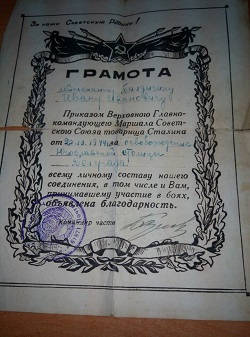 За нашу Советскую Родину!
ГРАМОТА
Ивану Ивановичу
Приказом Верховного Главно-
командующего Маршала Совет-
ского Союза товарища Сталина
от 1944 за освобождение
столицы
Белграда
всему личному составу нашего
соединения, в том числе и Вам,
принимавшему участие в боях,
объявлена благодарность.
командир части